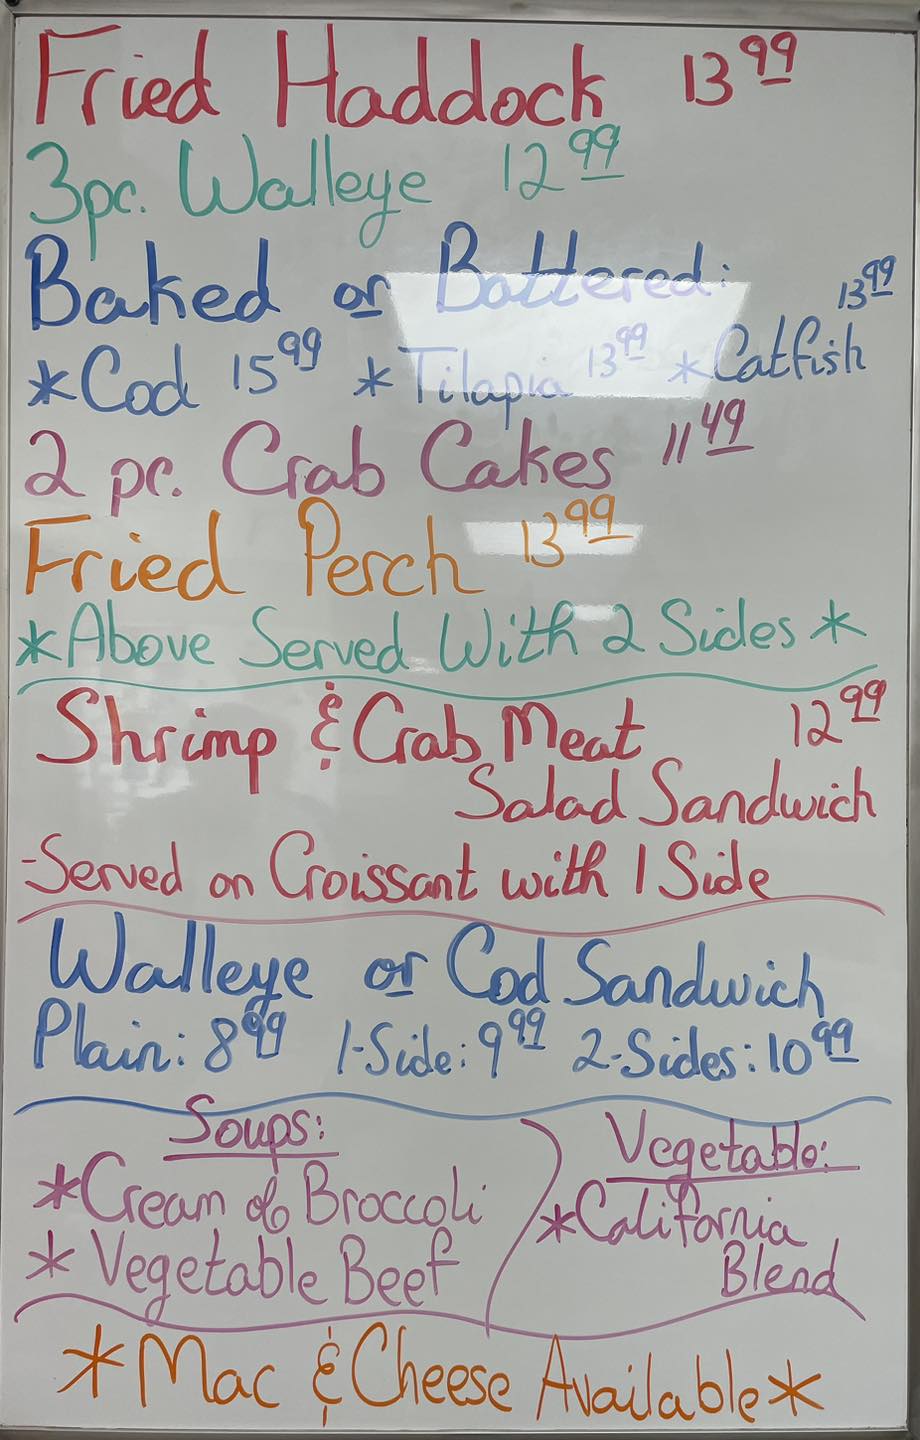 Fried Haddock 13.99
3pc. Walleye 12.99
Baked or Battered:
*Cod 15.99 *Tilapia 13.99 *Catfish 13.99
2 pc. Crab Cakes 11.49
Fried Perch 13.99
*Above Served With 2 Sides*
Shrimp & Crab Meat 12.99
Salad Sandwich
-Served on Croissant with 1 Side
Walleye or Cod Sandwich
Plain: 8.99 1-Side: 9.99 2-Sides: 10.99
Soups:
*Cream of Broccoli
*Vegetable Beef
Vegetable:
*California
Blend
*Mac & Cheese Available*